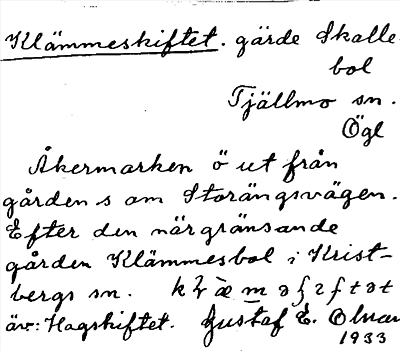 Klämmeskiftet. gärde Skalle-
bol
Tjällmo sn.
Ögl
Åkermarken ö ut från
gården s om Storängsvägen.
Efter den närgränsande
gården Klämmesbol i Krist-
bergs sn.
äv: Hagskiftet. Gustaf E. Olnar
1933